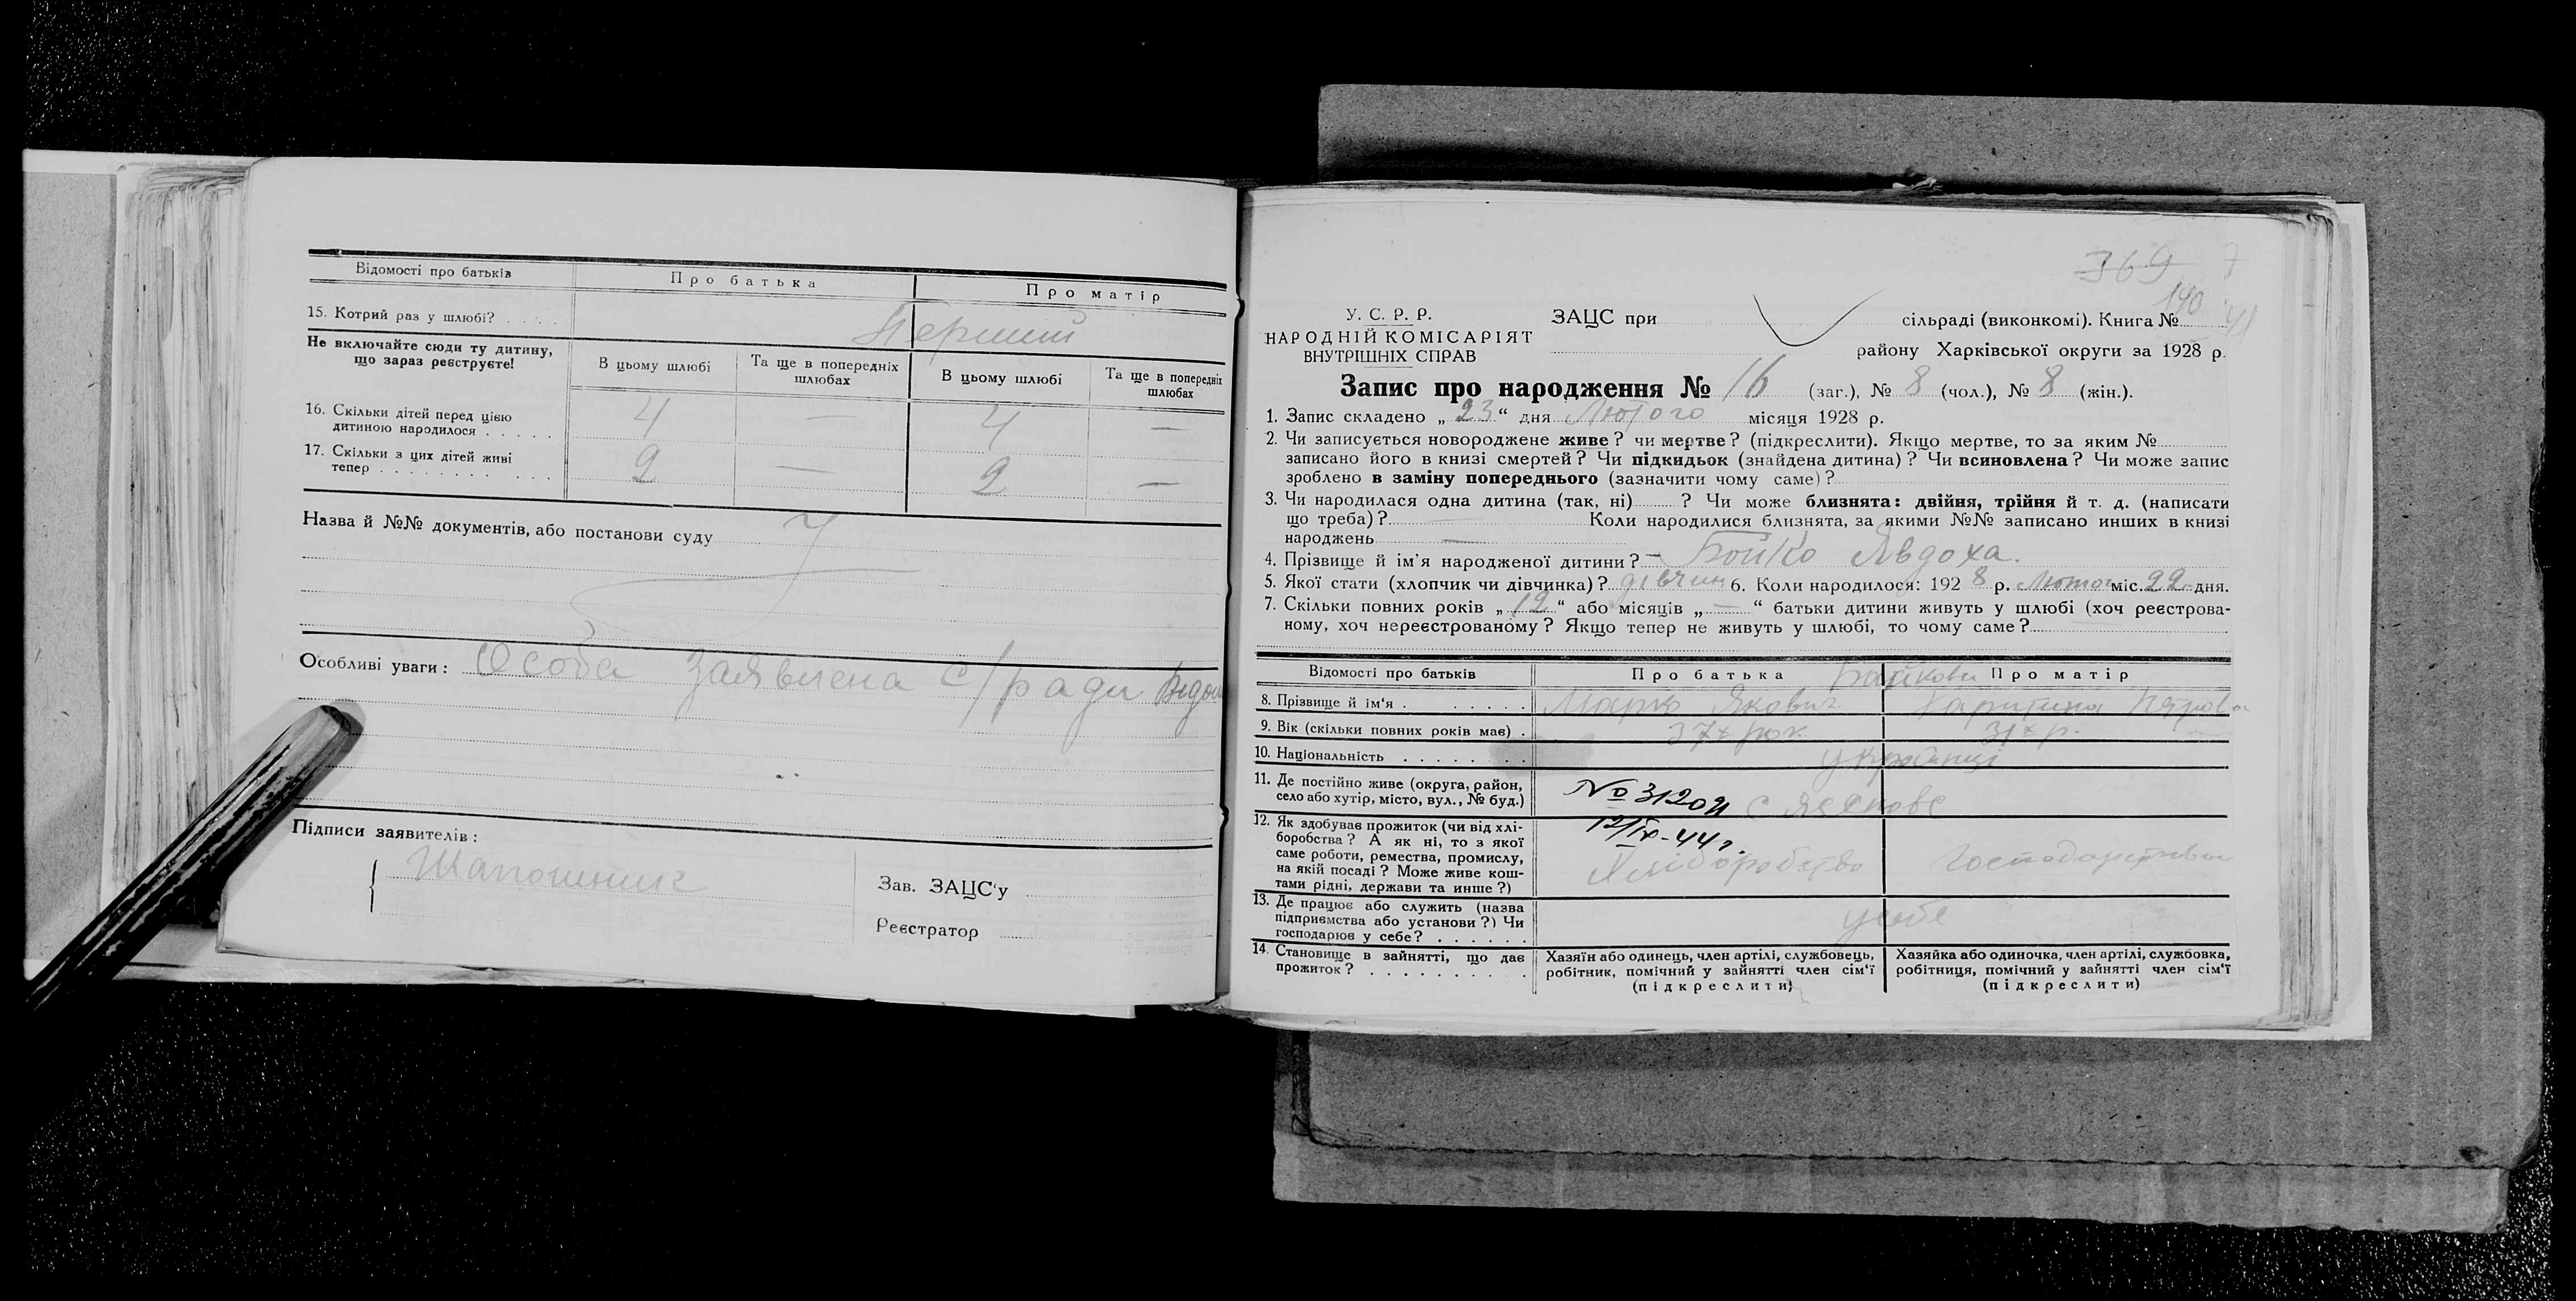 Відомості про батьків
Про батька
Про матір
15. Котрий раз у шлюбі? . . . .
Перший
Не включайте сюди ту дитину,
що зараз реєструєте!
В цьому шлюбі
Та ще в попередніх
шлюбах
В цьому шлюбі
Та ще в попередніх
шлюбах
16. Скільки дітей перед цією
дитиною народилося . . . . .
4 — 4 —
17. Скільки з цих дітей живі
тепер . . . . . . . . . . . .
2 — 2 —
Назва й №№ документів, або постанови суду
Особливі уваги: Особа заявлена с/ради відом
Підписи заявителів:
Шапошник
Зав. ЗАЦС'у
Реєстратор
369 7
140 41
У. С. Р. Р.
НАРОДНІЙ КОМІСАРІЯТ
ВНУТРІШНІХ СПРАВ
ЗАЦС при сільраді (виконкомі). Книга №
району Харківської округи за 1928 р.
Запис про народження № 16 (заг.), № 8 (чол.), № 8 (жін.).
1. Запис складено „ 23 “ дня Лютого місяця 1928 р.
2. Чи записується новороджене живе? чи мертве? (підкреслити). Якщо мертве, то за яким №
записано його в книзі смертей? Чи підкидьок (знайдена дитина)? Чи всиновлена? Чи може запис
зроблено в заміну попереднього (зазначити чому саме)?
3. Чи народилася одна дитина (так, ні) ? Чи може близнята: двійня, трійня й т. д. (написати
що треба)? — Коли народилися близнята, за якими №№ записано инших в книзі
народжень —
4. Прізвище й ім'я народженої дитини? — Бойко Явдоха.
5. Якої стати (хлопчик чи дівчинка)? дівчин 6. Коли народилося: 192 8 р. Лютого міс. 22 дня.
7. Скільки повних років „ 12 “ або місяців „ — “ батьки дитини живуть у шлюбі (хоч реєстрова-
ному, хоч нереєстрованому? Якщо тепер не живуть у шлюбі, то чому саме?
Відомості про батьків
Про батька
Про матір
Бойкови
8. Прізвище й ім'я . . . . . .
Марко Якович
Харитина Петрова
9. Вік (скільки повних років має) .
37х рок
31х р.
10. Національність . . . . . . .
Українці
11. Де постійно живе (округа, район,
село або хутір, місто, вул., № буд.)
№ 31204
12/IX-44 г.
12. Як здобуває прожиток (чи від хлі-
боробства? А як ні, то з якої
саме роботи, ремества, промислу,
на якій посаді? Може живе кош-
тами рідні, держави та инше?)
Хліборобство
Господарства
13. Де працює або служить (назва
підприємства або установи?) Чи
господарює у себе? . . . . . .
у себе
14. Становище в зайнятті, що дає
прожиток? . . . . . . . . . .
Хазяїн або одинець, член артілі, службовець,
робітник, помічний у зайнятті член сім'ї
(підкреслити)
Хазяйка або одиночка, член артілі, службовка,
робітниця, помічний у зайнятті член сім'ї
(підкреслити)